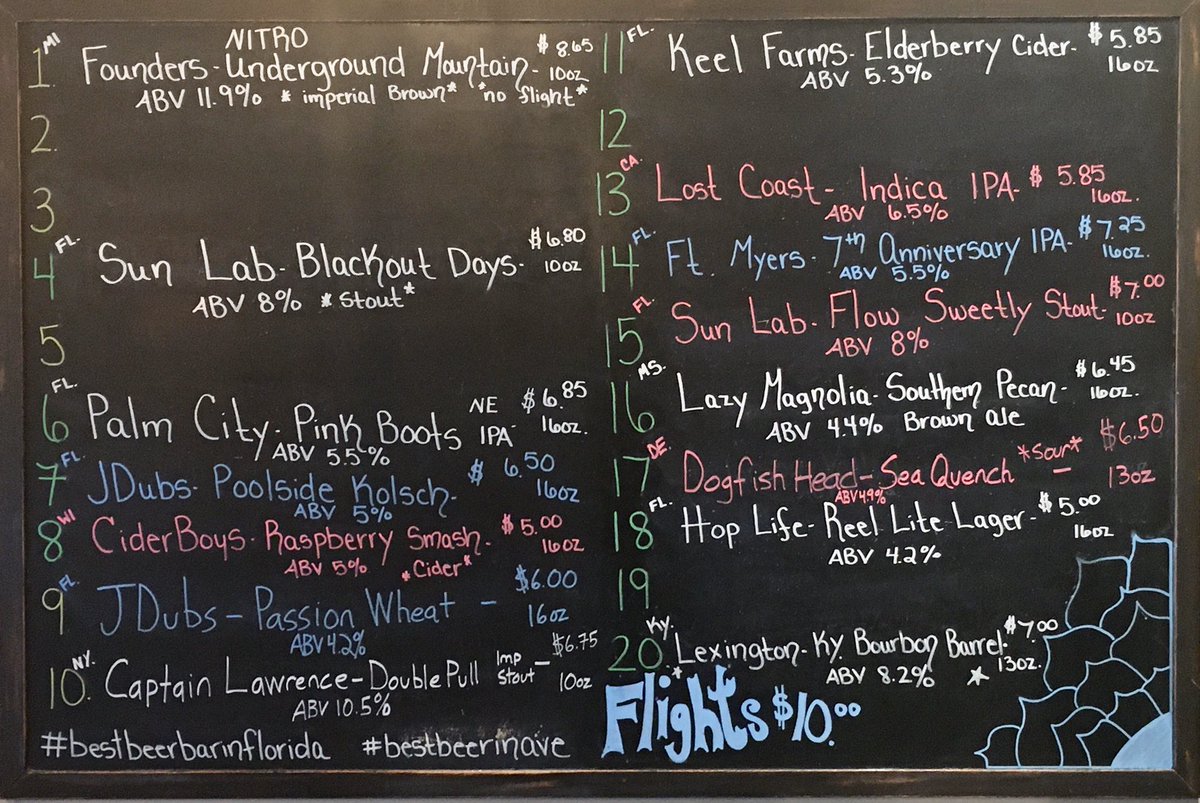 1. MI NITRO
Founders - Underground Mountain - $8.65
10oz
ABV 11.9% * imperial Brown* *no flight*
2.
3
4 FL. Sun Lab - Blackout Days - $6.80
10oz
ABV 8% *Stout*
5
6 FL. Palm City - Pink Boots NE IPA - $6.85
16oz.
ABV 5.5%
7 FL. JDubs - Poolside Kolsch - $6.50
16oz
ABV 5%
8 WI CiderBoys - Raspberry Smash - $5.00
16oz
ABV 5% *Cider*
9 FL. JDubs - Passion Wheat - $6.00
16oz
ABV 4.2%
10. NY. Captain Lawrence - Double Pull Imp Stout - $6.75
10oz
ABV 10.5%
#bestbeerbarinflorida #bestbeerinave
11 FL. Keel Farms - Elderberry Cider - $5.85
16oz
ABV 5.3%
12
13 CA. Lost Coast - Indica IPA - $5.85
16oz.
ABV 6.5%
14 FL. Ft. Myers - 7th Anniversary IPA - $7.25
16oz.
ABV 5.5%
15 FL. Sun Lab - Flow Sweetly Stout - $7.00
10oz
ABV 8%
16 MS. Lazy Magnolia - Southern Pecan - $6.45
16oz.
ABV 4.4% Brown ale
17 DE. Dogfish Head - Sea Quench *Sour* - $6.50
13oz
ABV 4.9%
18 FL. Hop Life - Reel Lite Lager - $5.00
16oz
ABV 4.2%
19
20 Ky. Lexington - Ky. Bourbon Barrel - $7.00
13oz.
ABV 8.2%
Flights $10.00